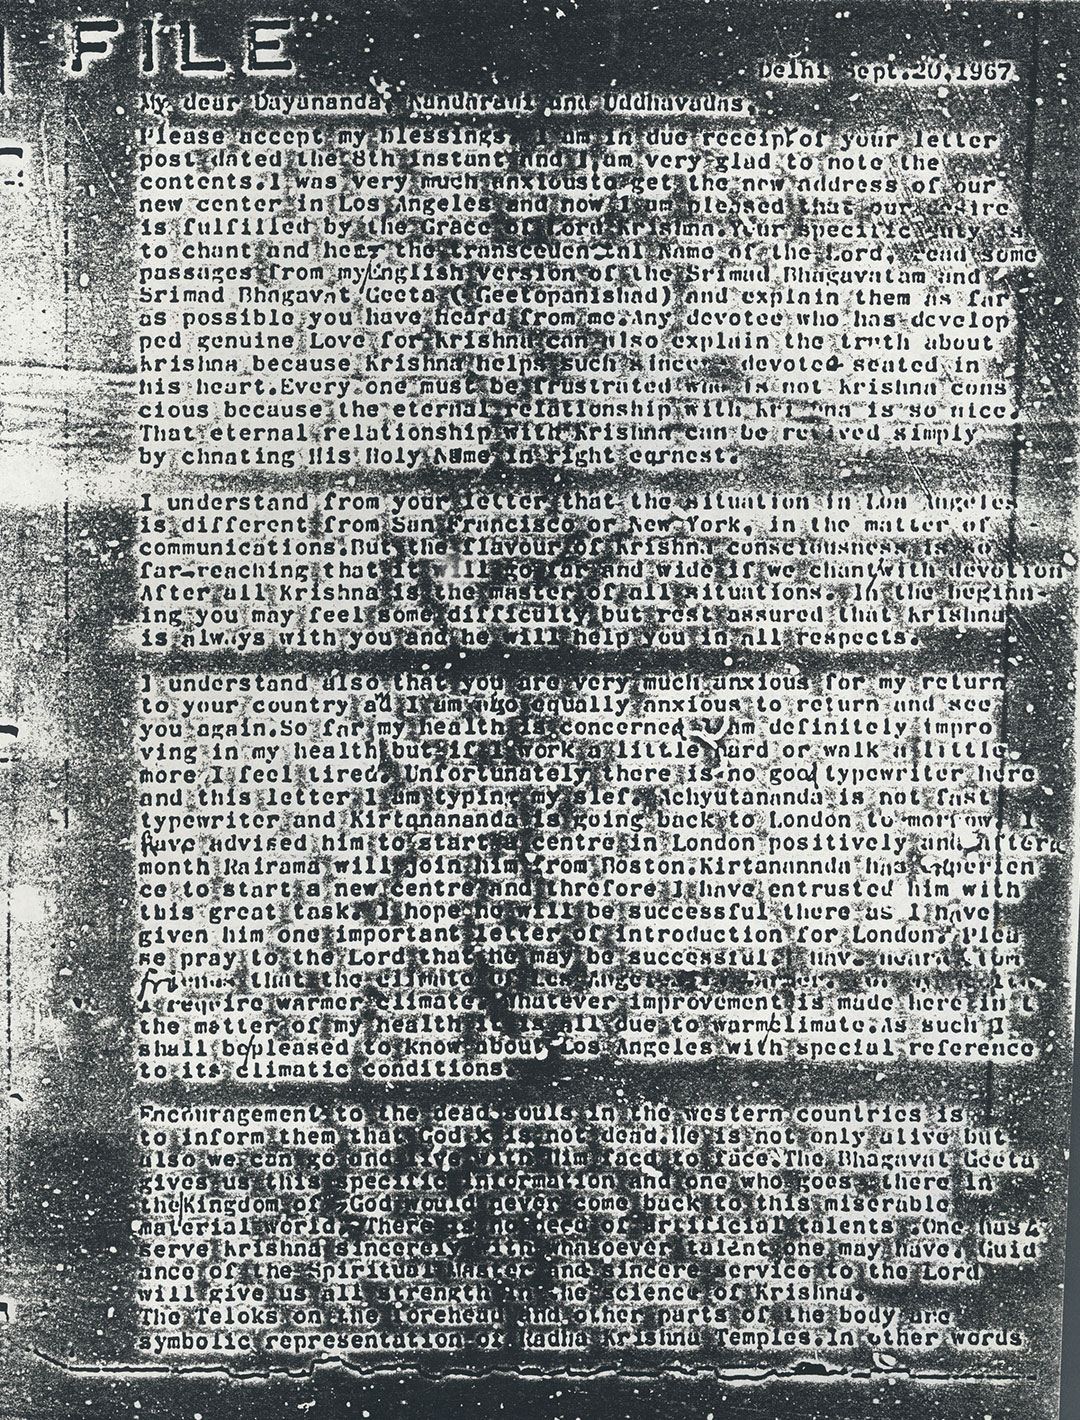 FILE
Delhi Sept.20,1967
My dear Dayananda, Nandharani and Uddhavadas,
Please accept my blessings. I am in due receipt of your letter
post dated the 8th instant and I am very glad to note the
contents.I was very much anxiousto get the new address of our
new center in Los Angeles and now I am pleased that our desire
is fulfilled by the Grace of Lord Krishna.Your specific duty is
to chant and hear the transcedental Name of the Lord, read some
passages from my English version of the Srimad Bhagavatam and
Srimad Bhagavat Geeta ( Geetopanishad) and explain them as far
as possible you have heard from me.Any devotee who has develop
ped genuine Love for Krishna can also explain the truth about
Krishna because Krishna helps such sincere devotee seated in
his heart.Every one must be frustrated who is not Krishna cons
cious because the eternal relationship with Krishna is so nice.
That eternal relationship with Krishna can be revived simply
by chnating His Holy Name in right earnest.
I understand from your letter that the situation in Los Angeles
is different from San Francisco or New York, in the matter of
communications.But the flavour of Krishna consciousness is so
far-reaching that it will go far and wide if we chant with devotion
After all Krishna is the master of all situations. In the beginn-
ing you may feel some difficulty but rest assured that Krishna
is always with you and he will help you in all respects.
I understand also that you are very much anxious for my return
to your country ad I am also equally anxious to return and see
you again.So far my health is concerned I am definitely impro
ving in my health but if I work a little hard or walk a little
more I feel tired. Unfortunately there is no good typewriter here
and this letter I am typing my slef. Achyutananda is not fast
typewriter and Kirtanananda is going back to London to-morrow. I
have advised him to start a centre in London positively and after a
month Rairama will join him from Boston.Kirtanannda has experien
ce to start a new centre and threfore I have entrusted him with
this great task. I hope he will be successful there as I have
given him one important letter of introduction for London. Plea
se pray to the Lord that he may be successful. I have heard from
that the climate of Los Angeles is
I require warmer climate. Whatever improvement is made here in t
the matter of my health it is all due to warm climate.As such I
shall be pleased to know about Los Angeles with special reference
to its climatic conditions.
Encouragement to the dead souls in the western countries is
to inform them that God is not dead.He is not only alive but
also we can go and live with Him face to face.The Bhagavat Geeta
gives us this specific information and one who goes there in
the Kingdom of God would never come back to this miserable
material world. There is no need of artificial talents. One has to
serve Krishna sincerely with whasoever talent one may have. Guid
ance of the Spiritual Master and sincere service to the Lord
will give us all strength in the science of Krishna.
The Teloks on the forehead and other parts of the body are
symbolic representation of Radha Krishna Temples.In other words